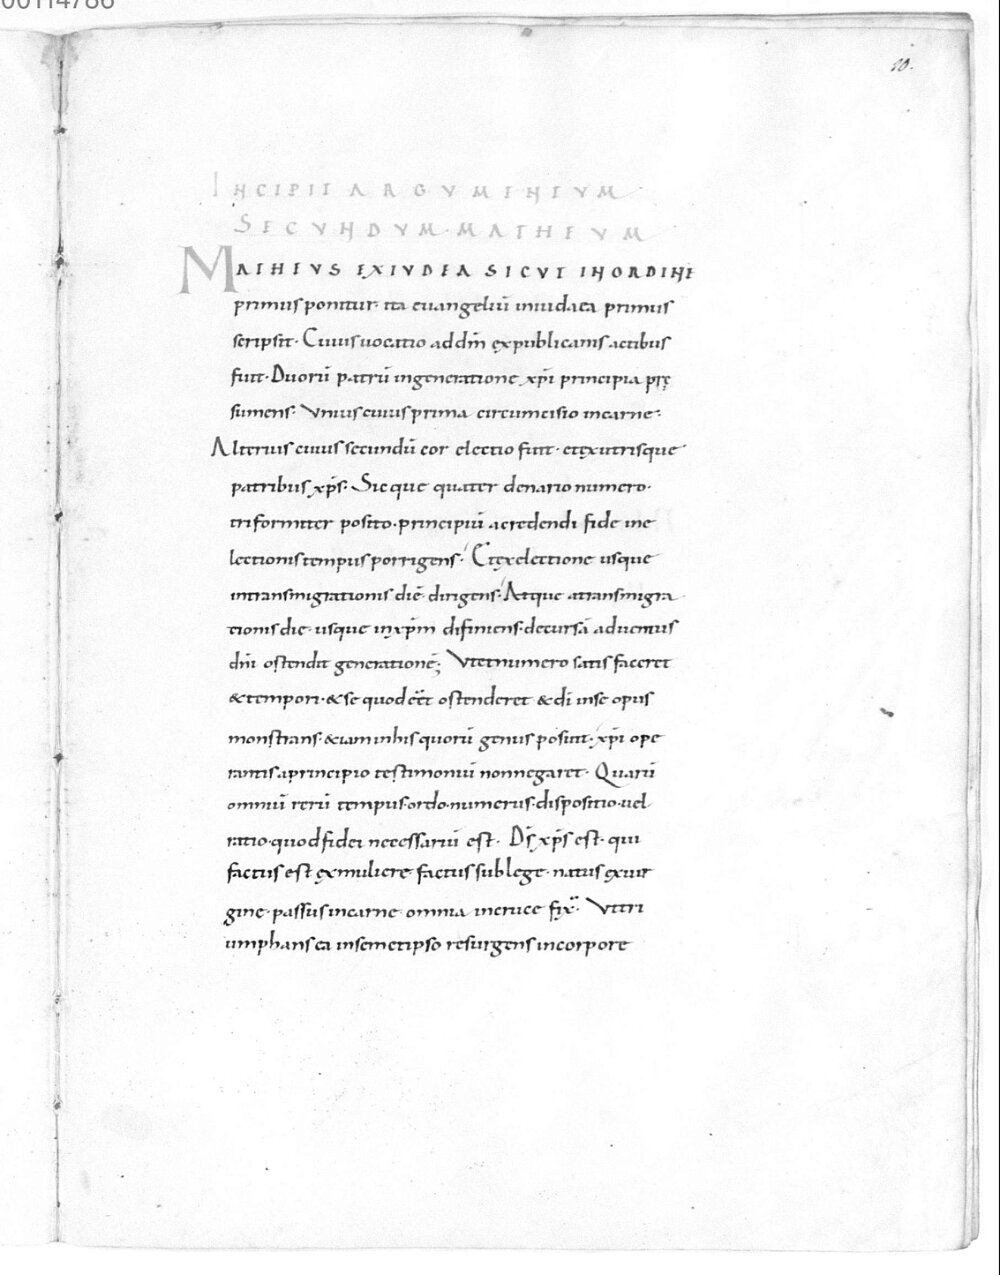 00114786
10.
INCIPIT ARGUMENTUM
SECUNDUM·MATHEUM
MATHEUS EXIUDEA SICUT INORDINE
primus ponitur· ita euangeliū iniudaea primus
scripsit· Cuius uocatio addm̄ ex publicanis actibus
fuit· Duorū patrū ingeneratione xp̄i principia prę
sumens· Unius cuius prima circumcisio incarne·
Alterius cuius secundū cor electio fuit· et exutrisque
patribus xp̄s· Sicque quater denario numero·
triformiter posito· principiū acredendi fide ine
lectionis tempus porrigens· Et exelectione usque
intransmigrationis diē dirigens· Atque atransmigra
tionis die· usque inxp̄m difiniens· decursā aduentus
dn̄i ostendit generationē; Utetnumero satis faceret
&tempori· &se quod eēt ostenderet &dī inse opus
monstrans· &iam inhis quorū genus posuit· xp̄i ope
rantis aprincipio testimoniū nonnegaret· Quarū
omniū rerū tempus· ordo· numerus· dispositio· uel
ratio· quod fidei necessariū est· Dī xp̄s est· qui
factus est exmuliere factus sub lege· natus exuir
gine· passus incarne omnia incruce fix̄· Uttri
umphans ea insemetipso resurgens incorpore